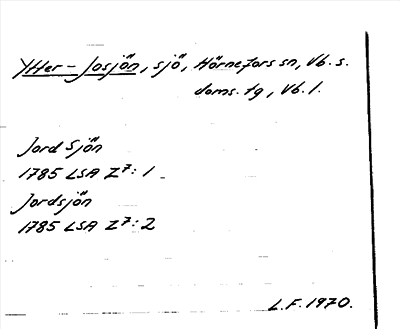 Ytter-Josjön, sjö, Hörnefors sn, Vb. s.
doms. tg, Vb. l.
Jord Sjön
1785 LSA Z7: 1
Jordsjön
1785 LSA Z7: 2
L.F. 1970.